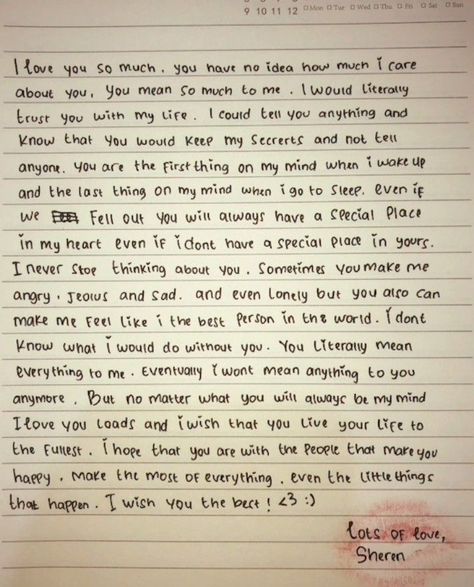 9 10 11 12 □Mon □Tue □Wed □Thu □Fri □Sat □Sun
I love you so much. you have no idea how much i care
about you, you mean so much to me. I would literally
trust you with my life. I could tell you anything and
know that you would keep my secrerts and not tell
anyone. you are the first thing on my mind when i wake up
and the last thing on my mind when i go to sleep. even if
we fell out you will always have a special place
in my heart even if i dont have a special place in yours.
I never stop thinking about you. Sometimes you make me
angry. jeolus and sad. and even lonely but you also can
make me feel like i the best person in the world. i dont
know what i would do without you. You literally mean
everything to me. eventually i wont mean anything to you
anymore. But no matter what you will always be my mind
I love you loads and i wish that you live your life to
the fullest. i hope that you are with the people that make you
happy. make the most of everything. even the little things
that happen. I wish you the best! <3 :)
lots of love,
Sheren